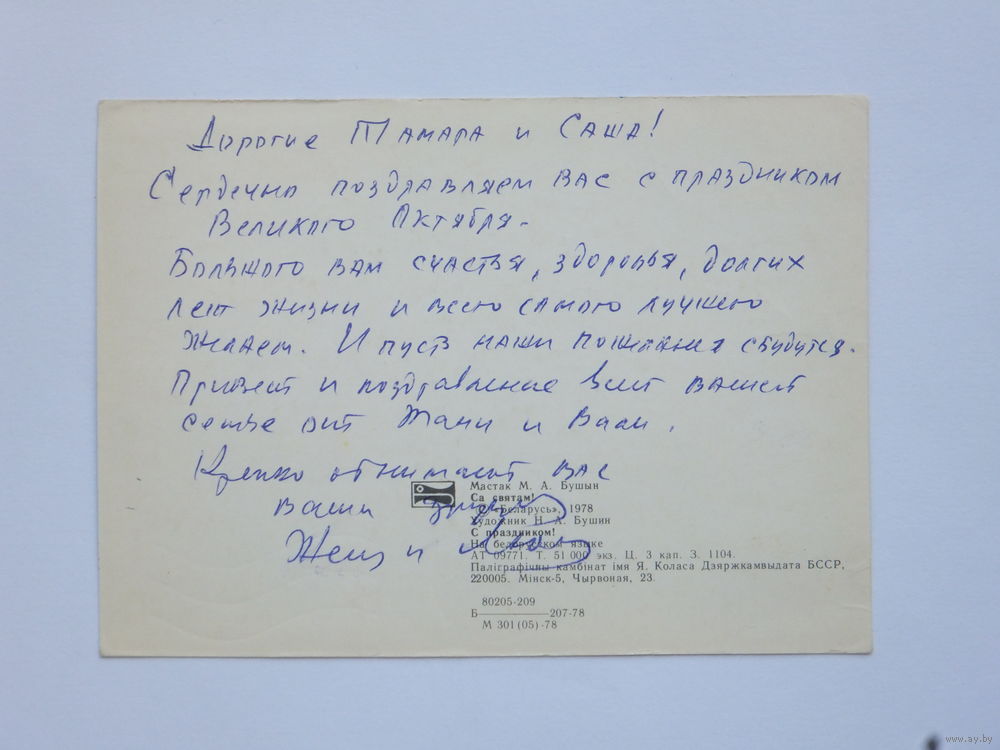 Дорогие Тамара и Саша!
Сердечно поздравляем Вас с праздником
Великого Октября.
Большого вам счастья, здоровья, долгих
лет жизни и всего самого лучшего
желаем. И пусть наши пожелания сбудутся.
Привет и поздравление всей вашей
семье от Жани и Вали.
Крепко обнимают Вас
Ваши друзья
Женя и
Мастак М. А. Бушын
Са святам!
© «Беларусь», 1978
Художник Н. А. Бушин
С праздником!
На белорусском языке
АТ 09771. Т. 51 000 экз. Ц. 3 кап. З. 1104.
Паліграфічны камбінат імя Я. Коласа Дзяржкамвыдата БССР,
220005. Мінск-5, Чырвоная, 23.
80205-209
Б————207-78
М 301(05)-78
www.ay.by